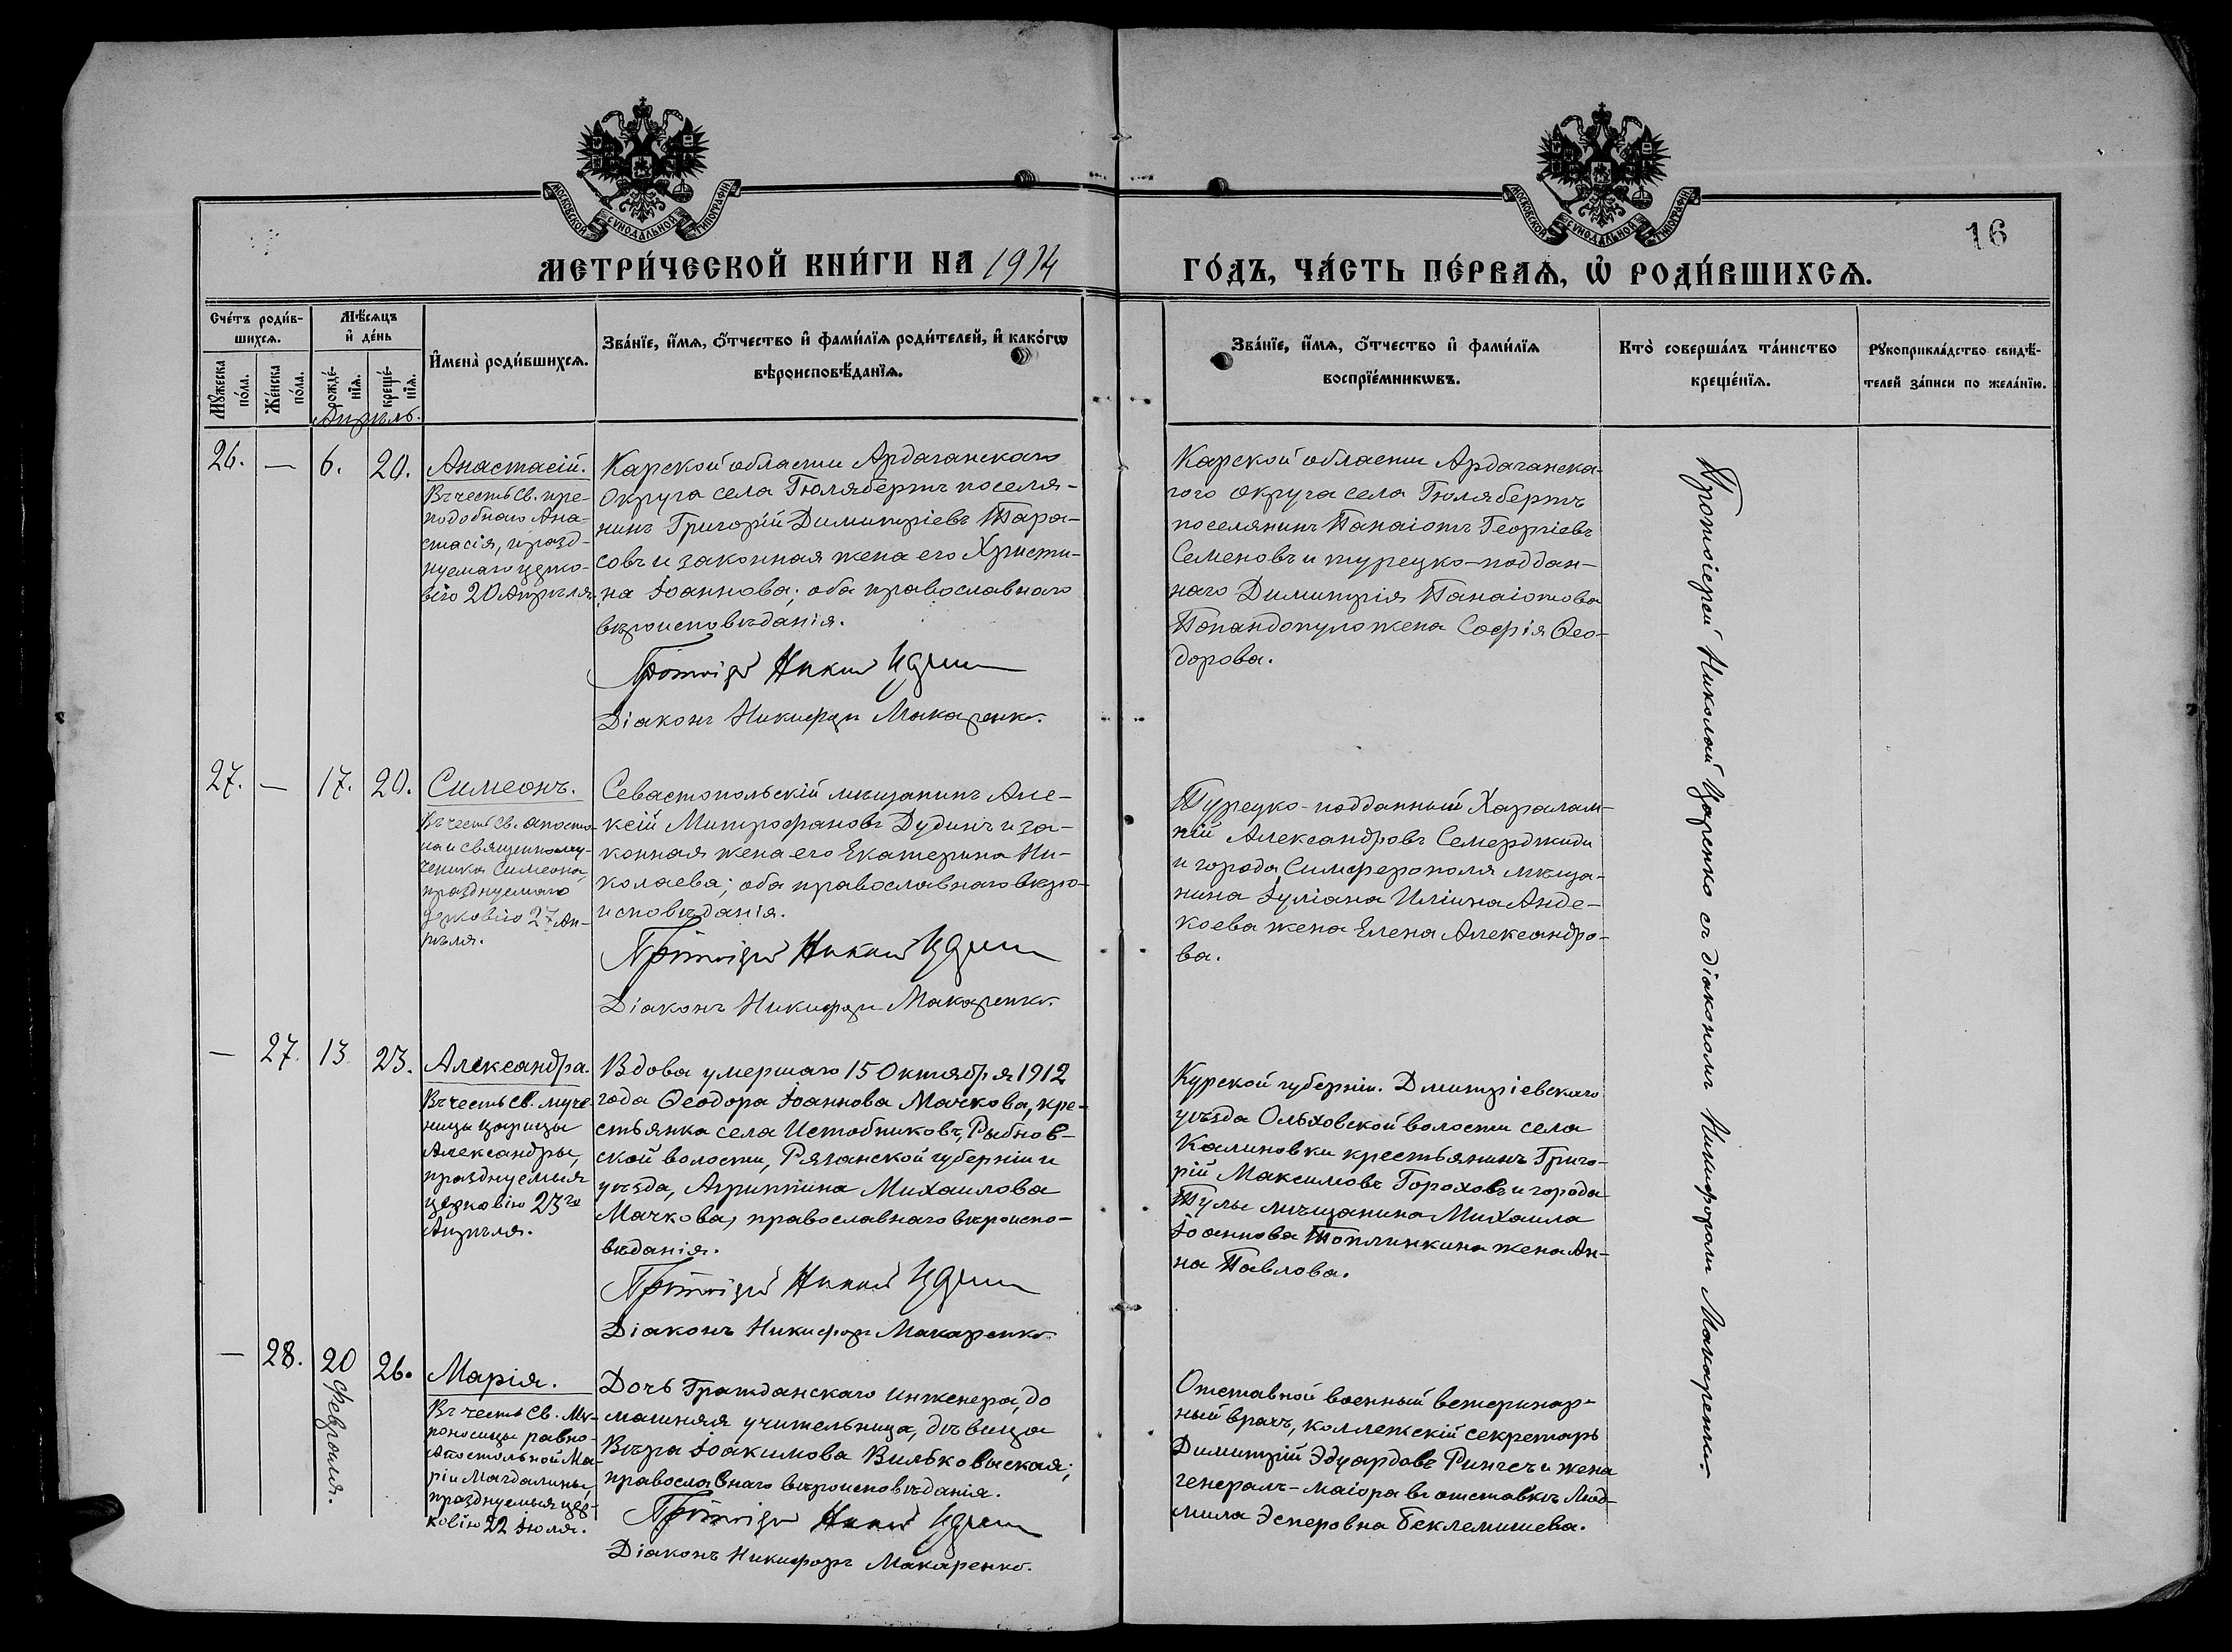 МОСКОВСКОЙ СУНОДАЛЬНОЙ ТИПОГРАФІИ
МОСКОВСКОЙ СУНОДАЛЬНОЙ ТИПОГРАФІИ
16
МЕТРИ́ЧЕСКОЙ КНИ́ГИ НА 1914 ГО́ДЪ, ЧА́СТЬ ПЕ́РВАѦ, Ѡ РОДИ́ВШИХСѦ.
Сче́тъ роди́вшихсѧ.
Мꙋ́жеска по́ла.
Же́нска по́ла.
Мѣ́сѧцъ и҆ де́нь
рожде́нїѧ.
креще́нїѧ.
И҆мена̀ роди́вшихсѧ.
Зва́нїе, и҆́мѧ, ѻ҆́тчество и҆ фами́лїѧ роди́телей, и҆ како́гѡ
вѣроисповѣ́данїѧ.
Зва́нїе, и҆́мѧ, ѻ҆́тчество и҆ фами́лїѧ
воспрїе́мникѡвъ.
Кто̀ соверша́лъ та́инство
креще́нїѧ.
Рꙋкоприкла́дство свидѣ́-
телей за́писи по жела́нїю.
Апрѣль.
26. — 6. 20.
Анастасій.
Въ честь св. пре-
подобнаго Ана-
стасія, празд-
нуемаго церко-
вію 20 Апрѣля.
Карской области Ардаганскаго
Округа села Гюляберть поселя-
нинъ Григорій Димитріевъ Тара-
совъ и законная жена его Христи-
на Іоаннова; оба православнаго
вѣроисповѣданія.
Протоіерей Николай Царенко
Діаконъ Никифоръ Макаренко.
Карской области Ардаганска-
гого округа села Гюлябертъ
поселянинъ Панаіотъ Георгіевъ
Семеновъ и турецко-поддан-
наго Димитрія Панаіотова
Попандопуло жена Софія Ѳео-
дорова.
27. — 17. 20.
Симеонъ.
Въ честь св. апосто-
ла и священному-
ченика Симеона,
празднуемаго
церковію 27 Ап-
рѣля.
Севастопольскій мѣщанинъ Але-
ксій Митрофановъ Дудинъ и за-
конная жена его Екатерина Ни-
колаева; оба православнаго вѣро-
исповѣданія.
Протоіерей Николай Царенко
Діаконъ Никифоръ Макаренко.
Турецко-подданный Харалам-
пій Александровъ Семерджиди
и города Симферополя мѣща-
нина Іуліана Иліина Анде-
коева жена Елена Александро-
ва.
— 27. 13. 23.
Александра.
Въ честь св. муче-
ницы царицы
Александры,
празднуемыя
церковію 23го
Апрѣля.
Вдова умершаго 15 Октября 1912
года Ѳеодора Іоаннова Мачкова, кре-
стьянка села Истобниковъ, Рыбнов-
ской волости, Рязанской губерніи и
уѣзда, Агриппина Михаилова
Мачкова, православнаго вѣроиспо-
вѣданія.
Протоіерей Николай Царенко
Діаконъ Никифоръ Макаренко
Курской губерніи. Дмитріевскаго
уѣзда Ольховской волости села
Калиновки крестьянинъ Григо-
рій Максимовъ Гороховъ и города
Тулы мѣщанина Михаила
Іоаннова Топлинкина жена Ан-
на Павлова.
— 28. 20 февраля. 26.
Марія.
Въ честь св. Мѵ-
роносицы равно-
апостольной Ма-
ріи Магдалины,
празднуемыя цер-
ковію 22 Іюля.
Дочь Гражданскаго Инженера, до
машняя учительница, дѣвица
Вѣра Іоакимова Вильковыская;
православнаго вѣроисповѣданія.
Протоіерей Николай Царенко
Діаконъ Никифоръ Макаренко.
Отставной военный ветеринар-
ный врачъ, коллежскій секретарь
Димитрій Эдуардовъ Рингсъ и жена
генералъ-маіора въ отставкѣ Люд-
мила Эсперовна Беклемишева.
Протоіерей Николай Царенко съ діакономъ Никифоромъ Макаренко